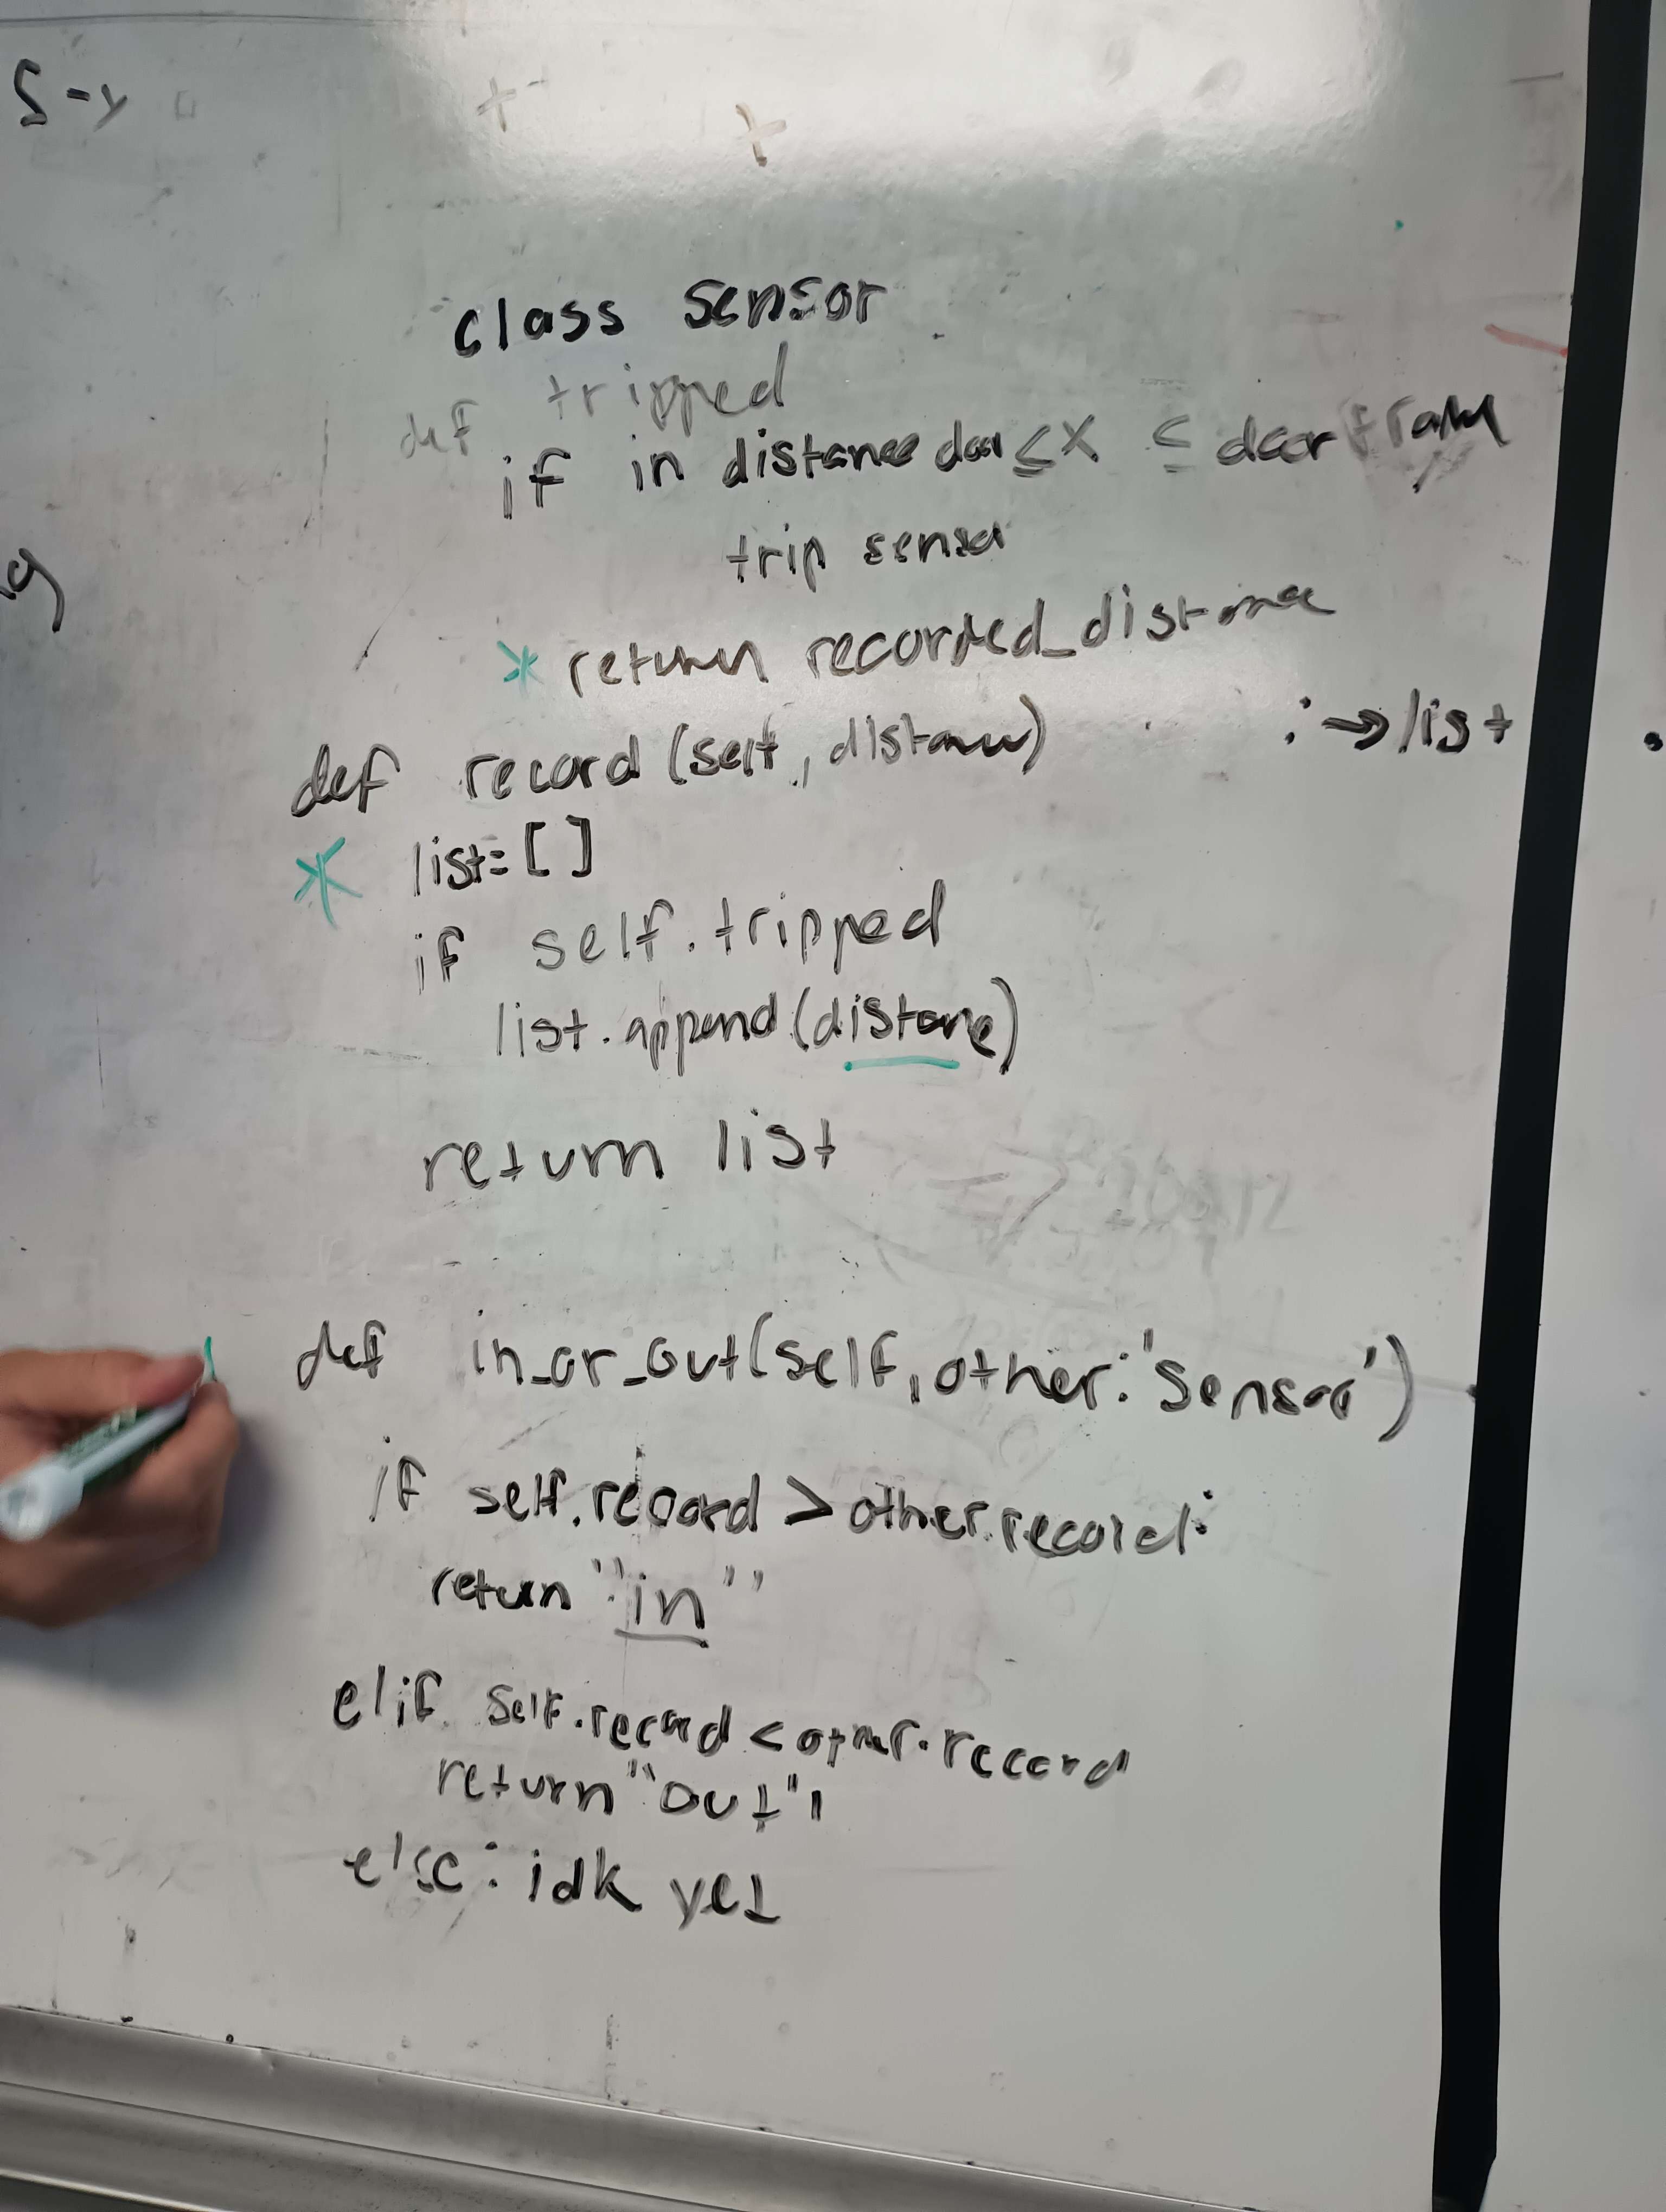 S-y
class sensor
def tripped
if in distance door ≤ X ≤ door frame
trip sensor
* return recorded_distance
def record (self, distance) : → list
* list=[]
if self.tripped
list.append(distane)
return list
def in_or_out(self, other: 'sensor')
if self.record > other.record:
return "in"
elif self.record < other.record
return "out"
else: idk yet